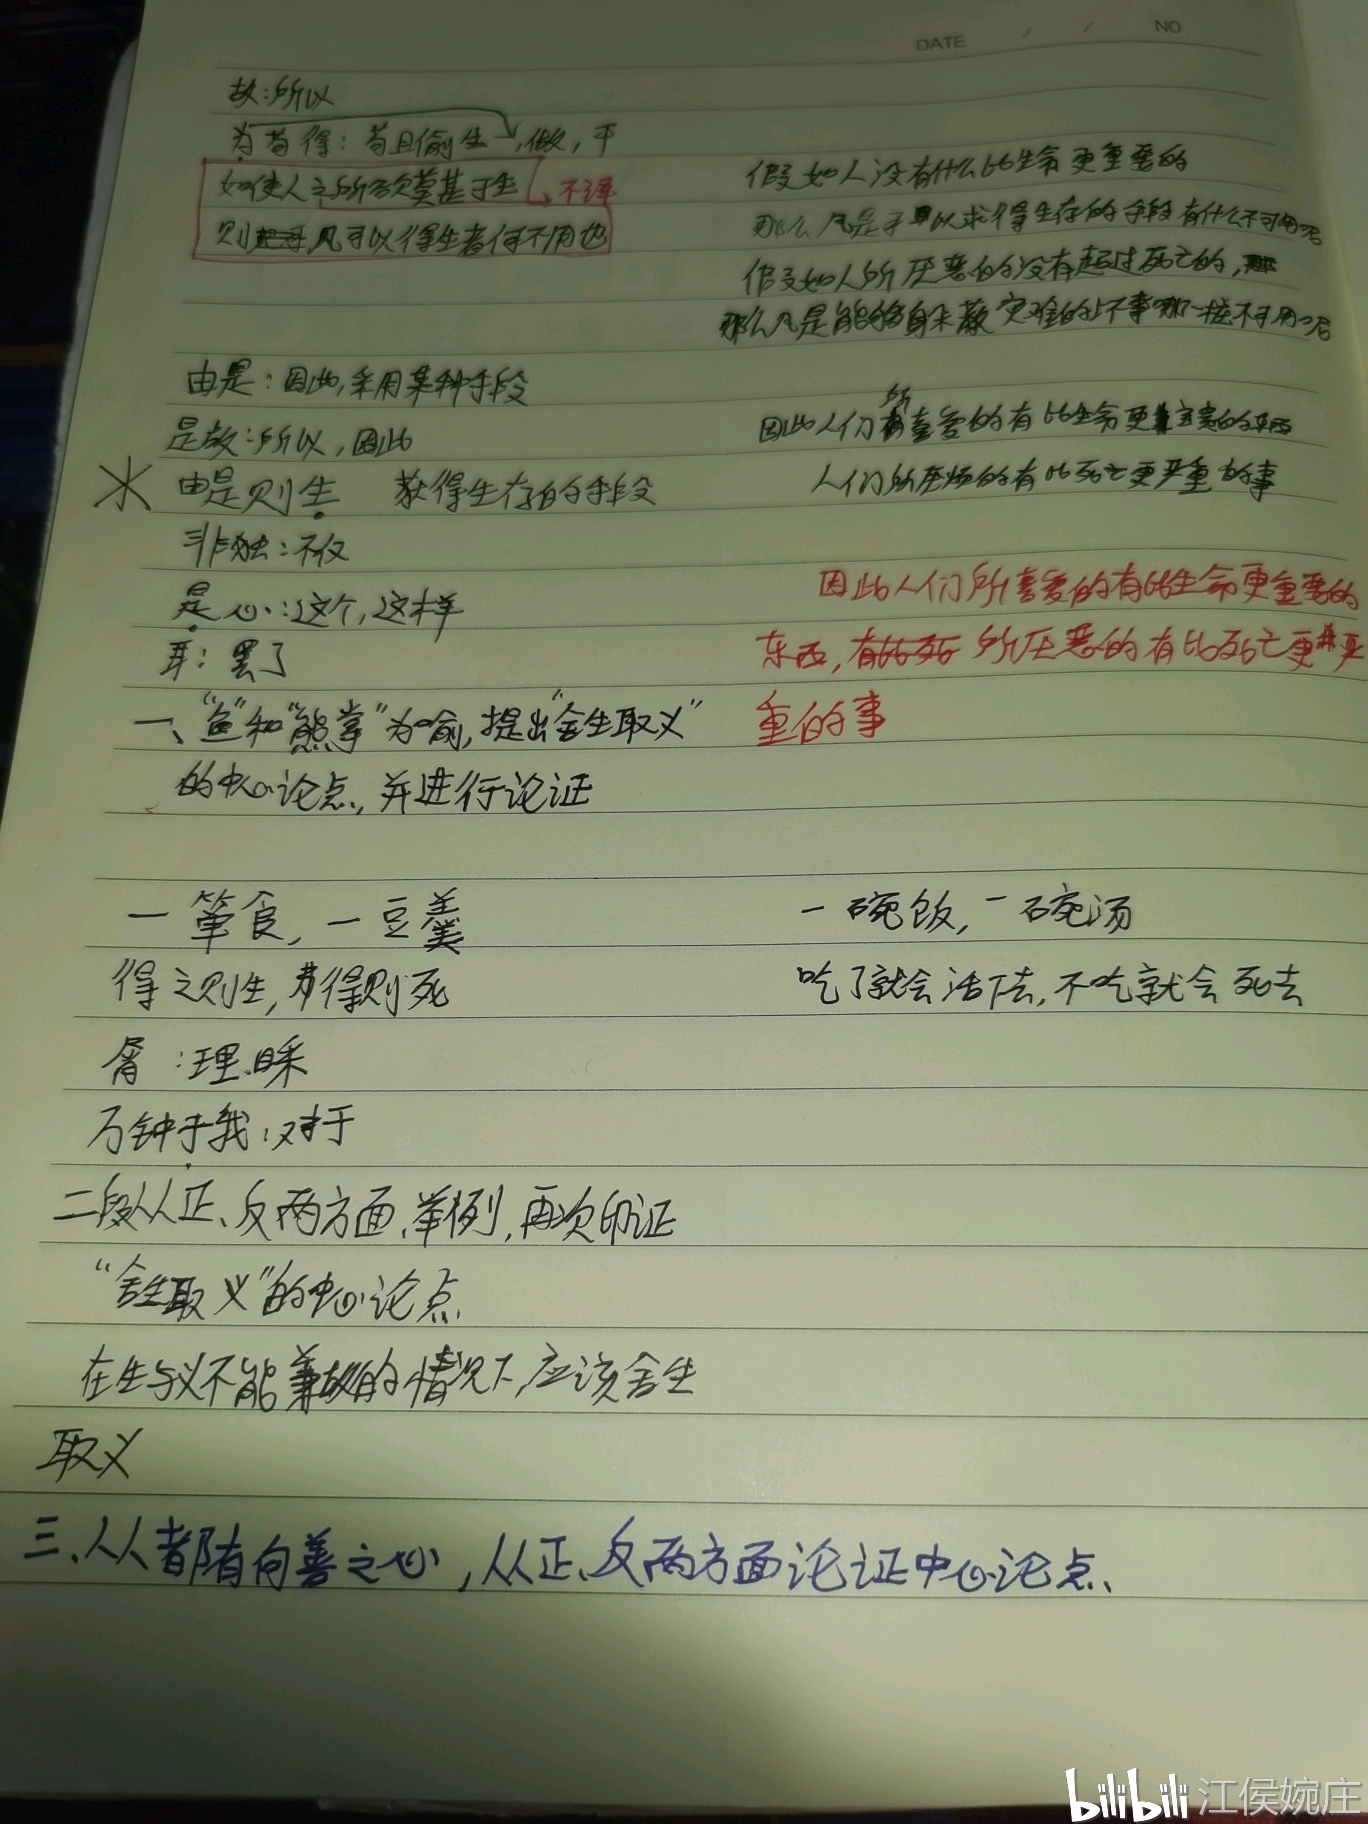 DATE / / NO
故:所以
为苟得:苟且偷生,做,干
如使人之所欲莫甚于生 不译
则凡可以得生者何不用也
假如人没有什么比生命更重要的
那么凡是可以求得生存的手段有什么不可用呢
假如人所厌恶的没有超过死亡的,
那么凡是能够 灾难的坏事哪一桩不可用呢
由是:因此,采用某种手段
是故:所以,因此
因此人们所喜爱的有比生命更宝贵的东西
由是则生 获得生存的手段
人们所厌恶的有比死亡更严重的事
非独:不仅
是心:这个,这样
因此人们所喜爱的有比生命更重要的
耳:罢了
东西,所厌恶的有比死亡更严
重的事
一、“鱼”和“熊掌”为喻,提出“舍生取义”
的中心论点,并进行论证
一箪食,一豆羹
一碗饭,一碗汤
得之则生,弗得则死
吃了就会活下去,不吃就会死去
屑:理睬
万钟于我:对于
二段从正、反两方面、举例,再次印证
“舍生取义”的中心论点
在生与义不能兼故的情况下,应该舍生
取义
三、人人都有向善之心,从正、反两方面论证中心论点、
bilibili 江侯婉庄